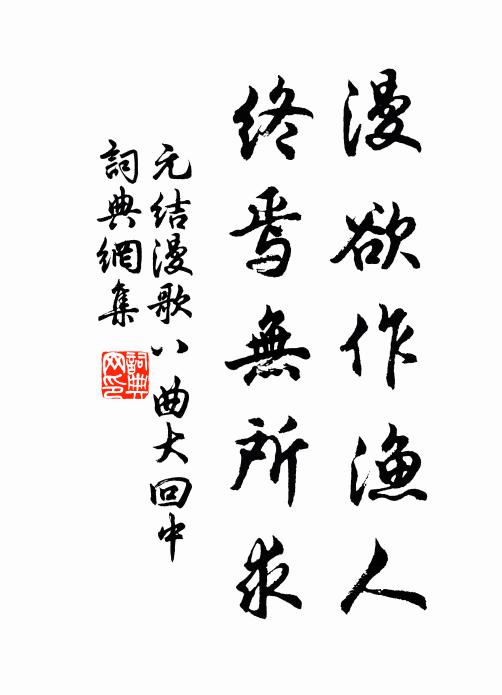 漫欲作漁人
終焉無所求
元結漫歌八曲大回中
詞典網集
詞典
网印